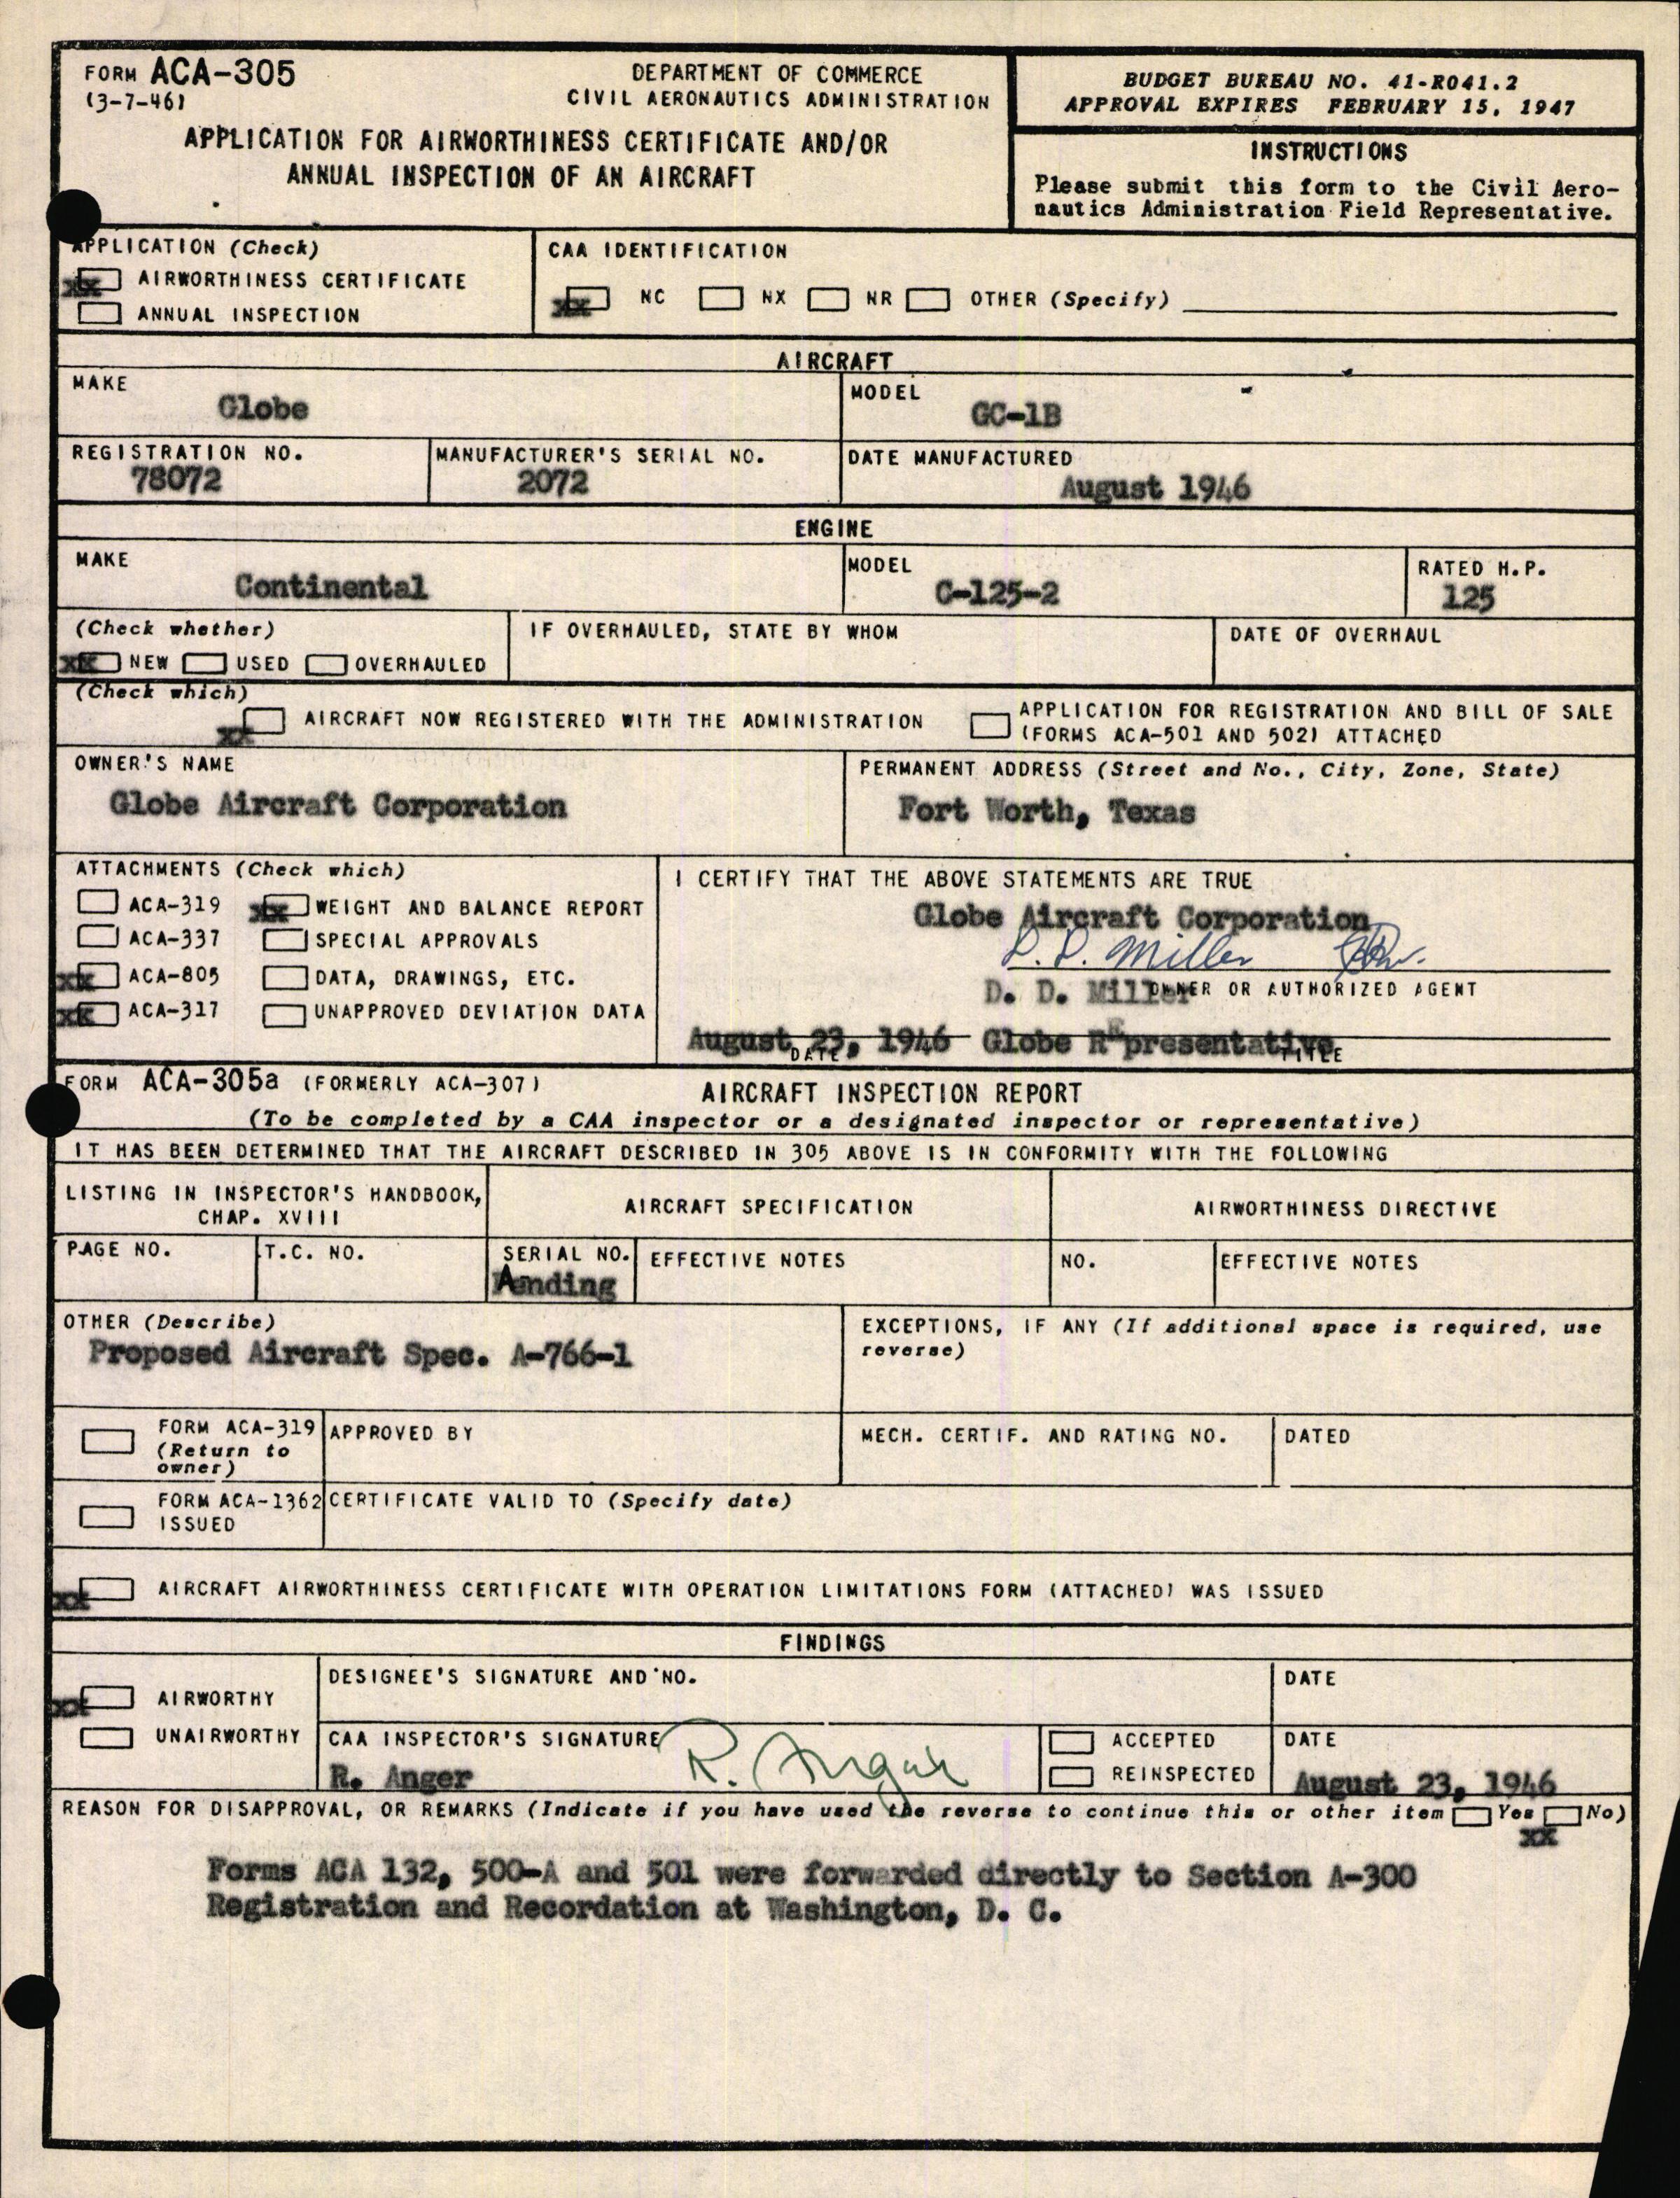 FORM ACA-305
(3-7-46)
DEPARTMENT OF COMMERCE
CIVIL AERONAUTICS ADMINISTRATION
APPLICATION FOR AIRWORTHINESS CERTIFICATE AND/OR
ANNUAL INSPECTION OF AN AIRCRAFT
BUDGET BUREAU NO. 41-R041.2
APPROVAL EXPIRES FEBRUARY 15, 1947
INSTRUCTIONS
Please submit this form to the Civil Aero-
nautics Administration Field Representative.
APPLICATION (Check)
xx AIRWORTHINESS CERTIFICATE
ANNUAL INSPECTION
CAA IDENTIFICATION
xx NC NX NR OTHER (Specify)
AIRCRAFT
MAKE
Globe
MODEL
GC-1B
REGISTRATION NO.
78072
MANUFACTURER'S SERIAL NO.
2072
DATE MANUFACTURED
August 1946
ENGINE
MAKE
Continental
MODEL
C-125-2
RATED H.P.
125
(Check whether)
xx NEW USED OVERHAULED
IF OVERHAULED, STATE BY WHOM
DATE OF OVERHAUL
(Check which)
xx AIRCRAFT NOW REGISTERED WITH THE ADMINISTRATION
APPLICATION FOR REGISTRATION AND BILL OF SALE
(FORMS ACA-501 AND 502) ATTACHED
OWNER'S NAME
Globe Aircraft Corporation
PERMANENT ADDRESS (Street and No., City, Zone, State)
Fort Worth, Texas
ATTACHMENTS (Check which)
ACA-319 xx WEIGHT AND BALANCE REPORT
ACA-337 SPECIAL APPROVALS
xx ACA-805 DATA, DRAWINGS, ETC.
xx ACA-317 UNAPPROVED DEVIATION DATA
I CERTIFY THAT THE ABOVE STATEMENTS ARE TRUE
Globe Aircraft Corporation
D. D. Miller
D. D. Miller OWNER OR AUTHORIZED AGENT
August 23, 1946 Globe Representative
DATE TITLE
FORM ACA-305a (FORMERLY ACA-307)
AIRCRAFT INSPECTION REPORT
(To be completed by a CAA inspector or a designated inspector or representative)
IT HAS BEEN DETERMINED THAT THE AIRCRAFT DESCRIBED IN 305 ABOVE IS IN CONFORMITY WITH THE FOLLOWING
LISTING IN INSPECTOR'S HANDBOOK,
CHAP. XVIII
AIRCRAFT SPECIFICATION
AIRWORTHINESS DIRECTIVE
PAGE NO.
T.C. NO.
SERIAL NO.
Pending
EFFECTIVE NOTES
NO.
EFFECTIVE NOTES
OTHER (Describe)
Proposed Aircraft Spec. A-766-1
EXCEPTIONS, IF ANY (If additional space is required, use
reverse)
FORM ACA-319
(Return to
owner)
APPROVED BY
MECH. CERTIF. AND RATING NO.
DATED
FORM ACA-1362
ISSUED
CERTIFICATE VALID TO (Specify date)
xx AIRCRAFT AIRWORTHINESS CERTIFICATE WITH OPERATION LIMITATIONS FORM (ATTACHED) WAS ISSUED
FINDINGS
xx AIRWORTHY
UNAIRWORTHY
DESIGNEE'S SIGNATURE AND NO.
DATE
CAA INSPECTOR'S SIGNATURE
R. Anger
R. Anger
ACCEPTED
REINSPECTED
DATE
August 23, 1946
REASON FOR DISAPPROVAL, OR REMARKS (Indicate if you have used the reverse to continue this or other item Yes No)
xx
Forms ACA 132, 500-A and 501 were forwarded directly to Section A-300
Registration and Recordation at Washington, D. C.